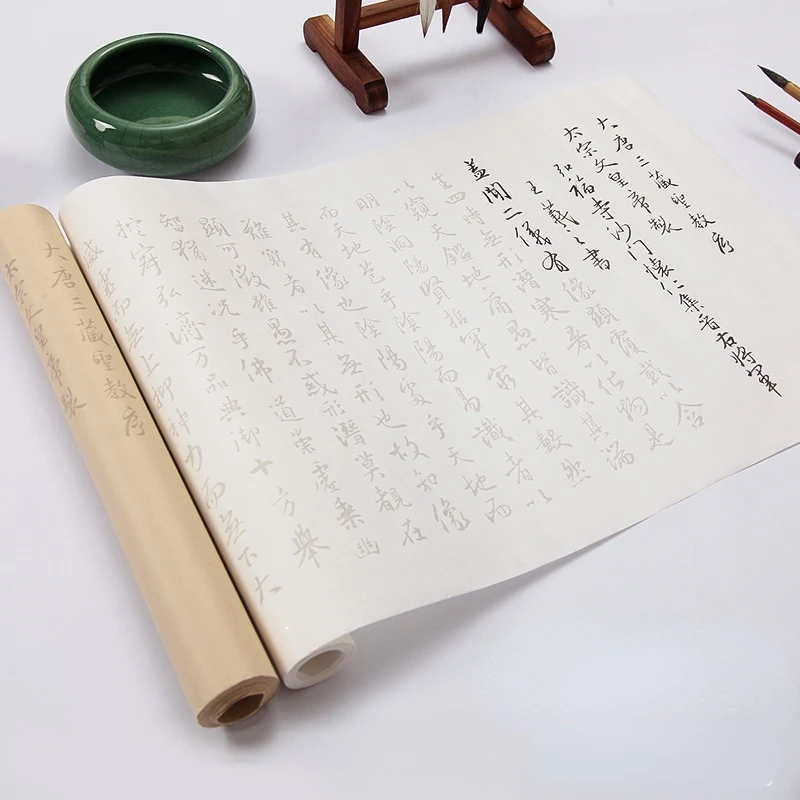 大唐三藏聖教序
太宗文皇帝製
弘福寺沙門懷仁集晉右將軍
王羲之書
蓋聞二儀有像顯覆載以含
生四時無形潛寒暑以化物是
以窺天鑑地庸愚皆識其端
明陰洞陽賢哲罕窮其數然
而天地苞乎陰陽而易識者以
其有像也陰陽處乎天地而
難窮者以其無形也故知像
顯可徵雖愚不惑形潛莫覩在
智猶迷況乎佛道崇虛乘幽
控寂弘濟万品典御十方舉
威靈而無上抑神力而無下大
大唐三藏聖教序
太宗文皇帝製